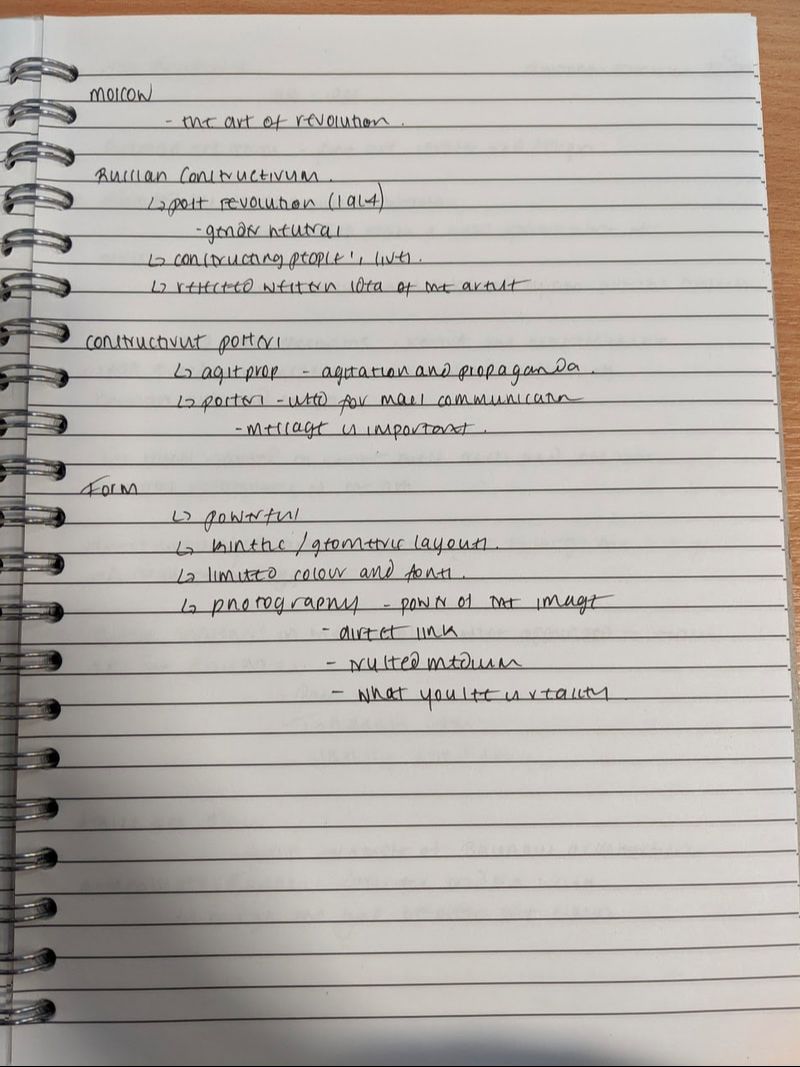 Moscow
- the art of revolution.
Russian Constructivism.
↳ post revolution (1914)
- gender neutral
↳ constructing people's lives.
↳ rejected western idea of the artist
Constructivist posters
↳ agitprop - agitation and propaganda.
↳ posters - used for mass communication
- message is important.
Form
↳ powerful
↳ kinetic / geometric layouts.
↳ limited colour and fonts.
↳ photography - power of the image
- direct link
- medium
- what you see is reality